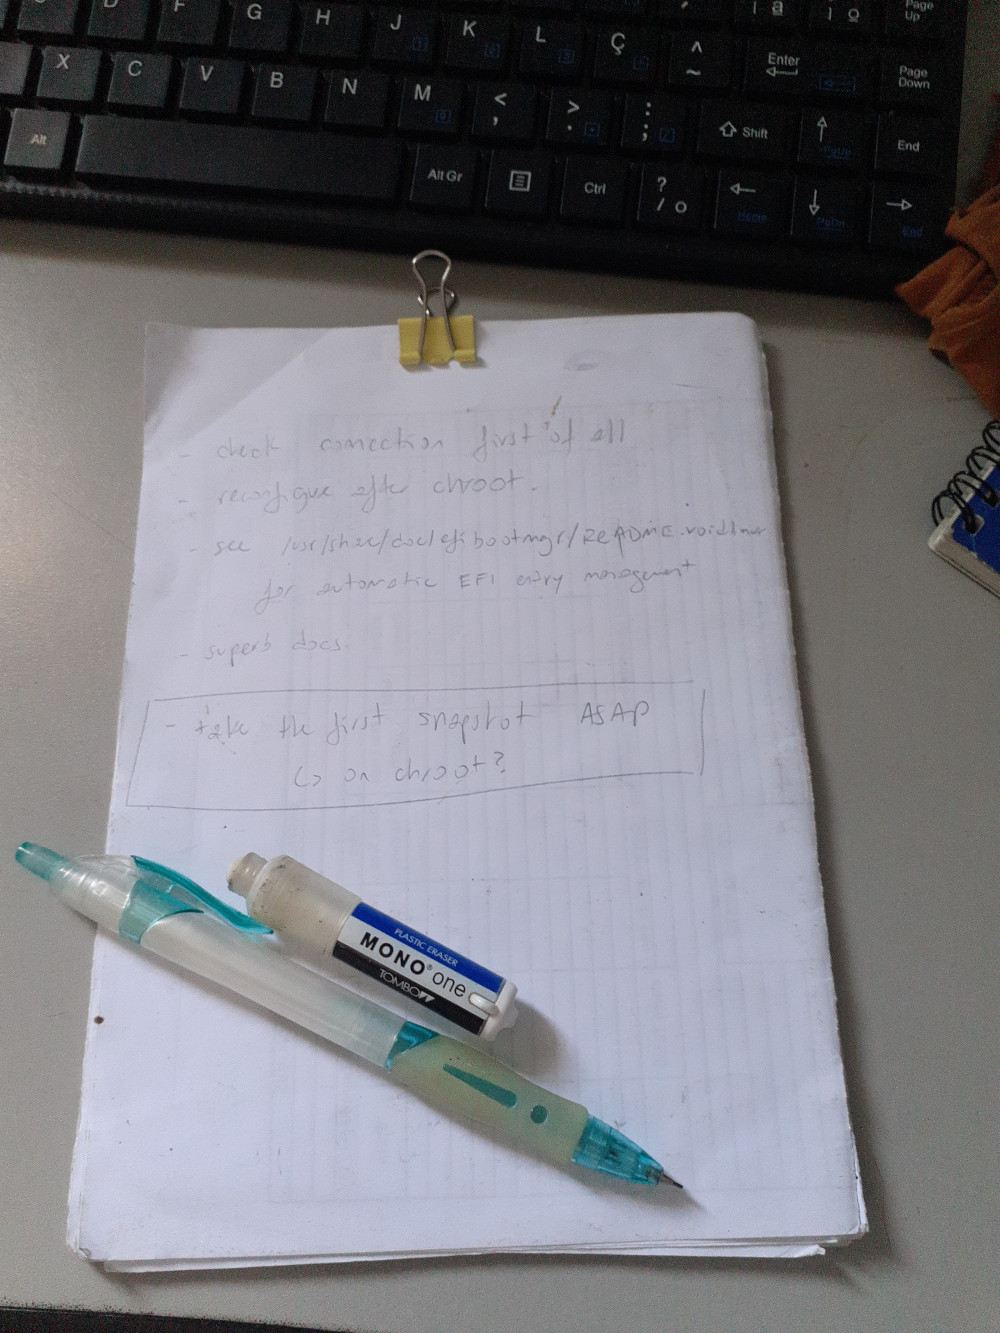 G H J K L Ç ^ ~ Enter Page Up
X C V B N M < , > . : ; Shift Page Down
Alt Alt Gr Ctrl ? / o End
- check conection first of all
- reconfigure after chroot.
- see /usr/share/doc/efibootmgr/README.voidlinux
for automatic EFI entry management
- superb docs.
- take the first snapshot ASAP
↳ on chroot?
PLASTIC ERASER
MONO® one
TOMBOW